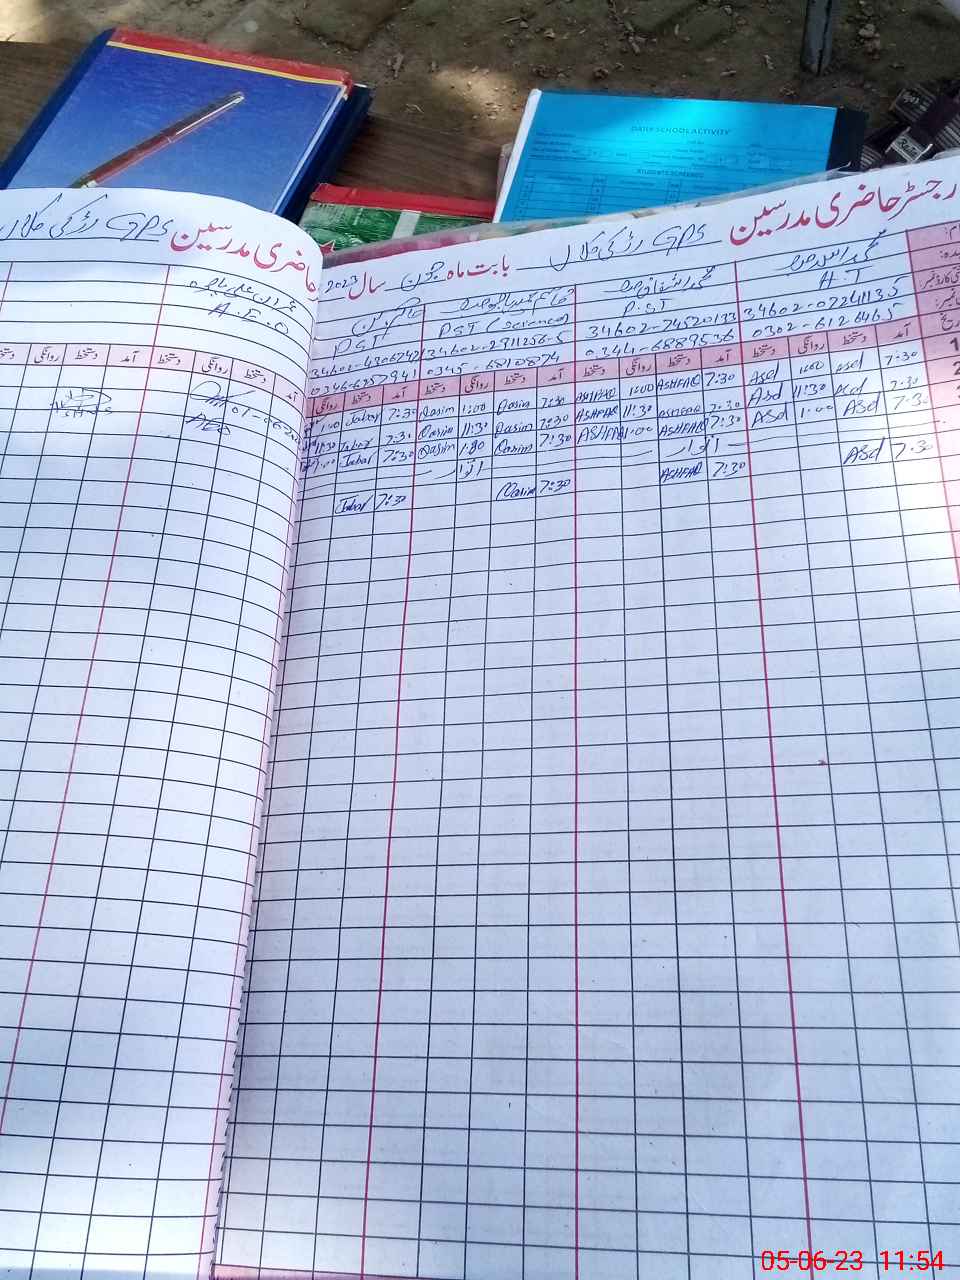 DAILY SCHOOL ACTIVITY
STUDENTS SCREENED
رجسٹر حاضری مدرسین GPS رڑکی کلاں بابت ماہ جون سال 2023
محمد اسد
H.T
34602-0724113-5
0302-6126465
محمد اشفاق
P.ST
34602-7452013-3
0344-6889536
PST (Science)
34602-2911256-5
0345-6810874
PST
34602-4306742
0346-6257941
آمد دستخط روانگی دستخط آمد دستخط روانگی دستخط آمد دستخط روانگی دستخط آمد دستخط روانگی
7:30 Asd 1:00 Asd 7:30 ASHFAQ 1:00 ASHFAQ 7:30 Qasim 1:00 Qasim 7:30 Jabar 1:00
7:30 Asd 11:30 Asd 7:30 ASHFAQ 11:30 ASHFAQ 7:30 Qasim 11:30 Qasim 7:30 Jabar 11:30
7:30 Asd 1:00 Asd 7:30 ASHFAQ 1:00 ASHFAQ 7:30 Qasim 1:00 Qasim 7:30 Jabar 1:00
اتوار اتوار
7:30 Asd 7:30 ASHFAQ 7:30 Qasim 7:30 Jabar
حاضری مدرسین GPS رڑکی کلاں
A.E.O
آمد دستخط روانگی دستخط آمد دستخط روانگی دستخط
01-06-2023
AEO
05-06-23 11:54